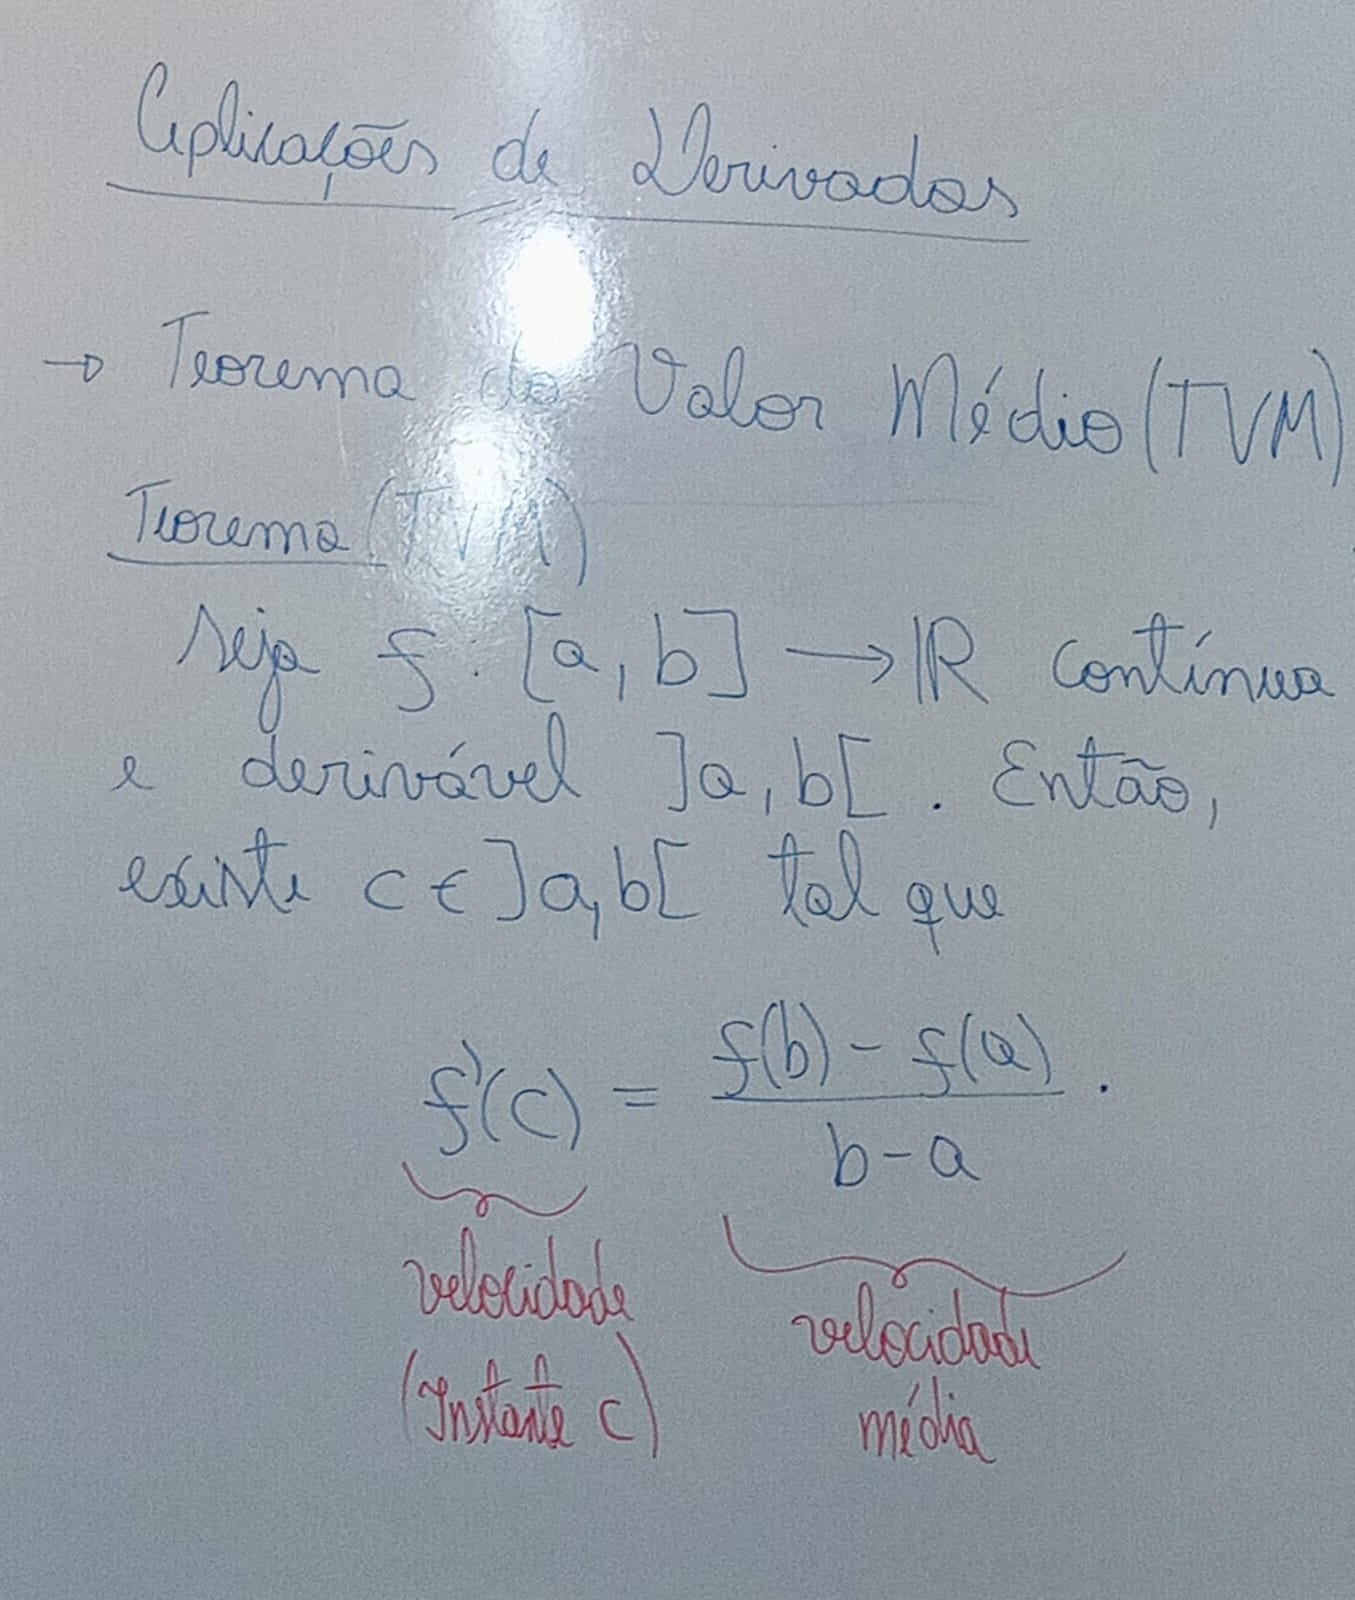 Aplicações de Derivadas
→ Teorema do Valor Médio (TVM)
Teorema (TVM)
Seja f: [a, b] → ℝ contínua
e derivável ]a, b[ . Então,
existe c ∈ ]a, b[ tal que
f'(c) = f(b) - f(a) / b - a .
velocidade velocidade
(Instante c) média